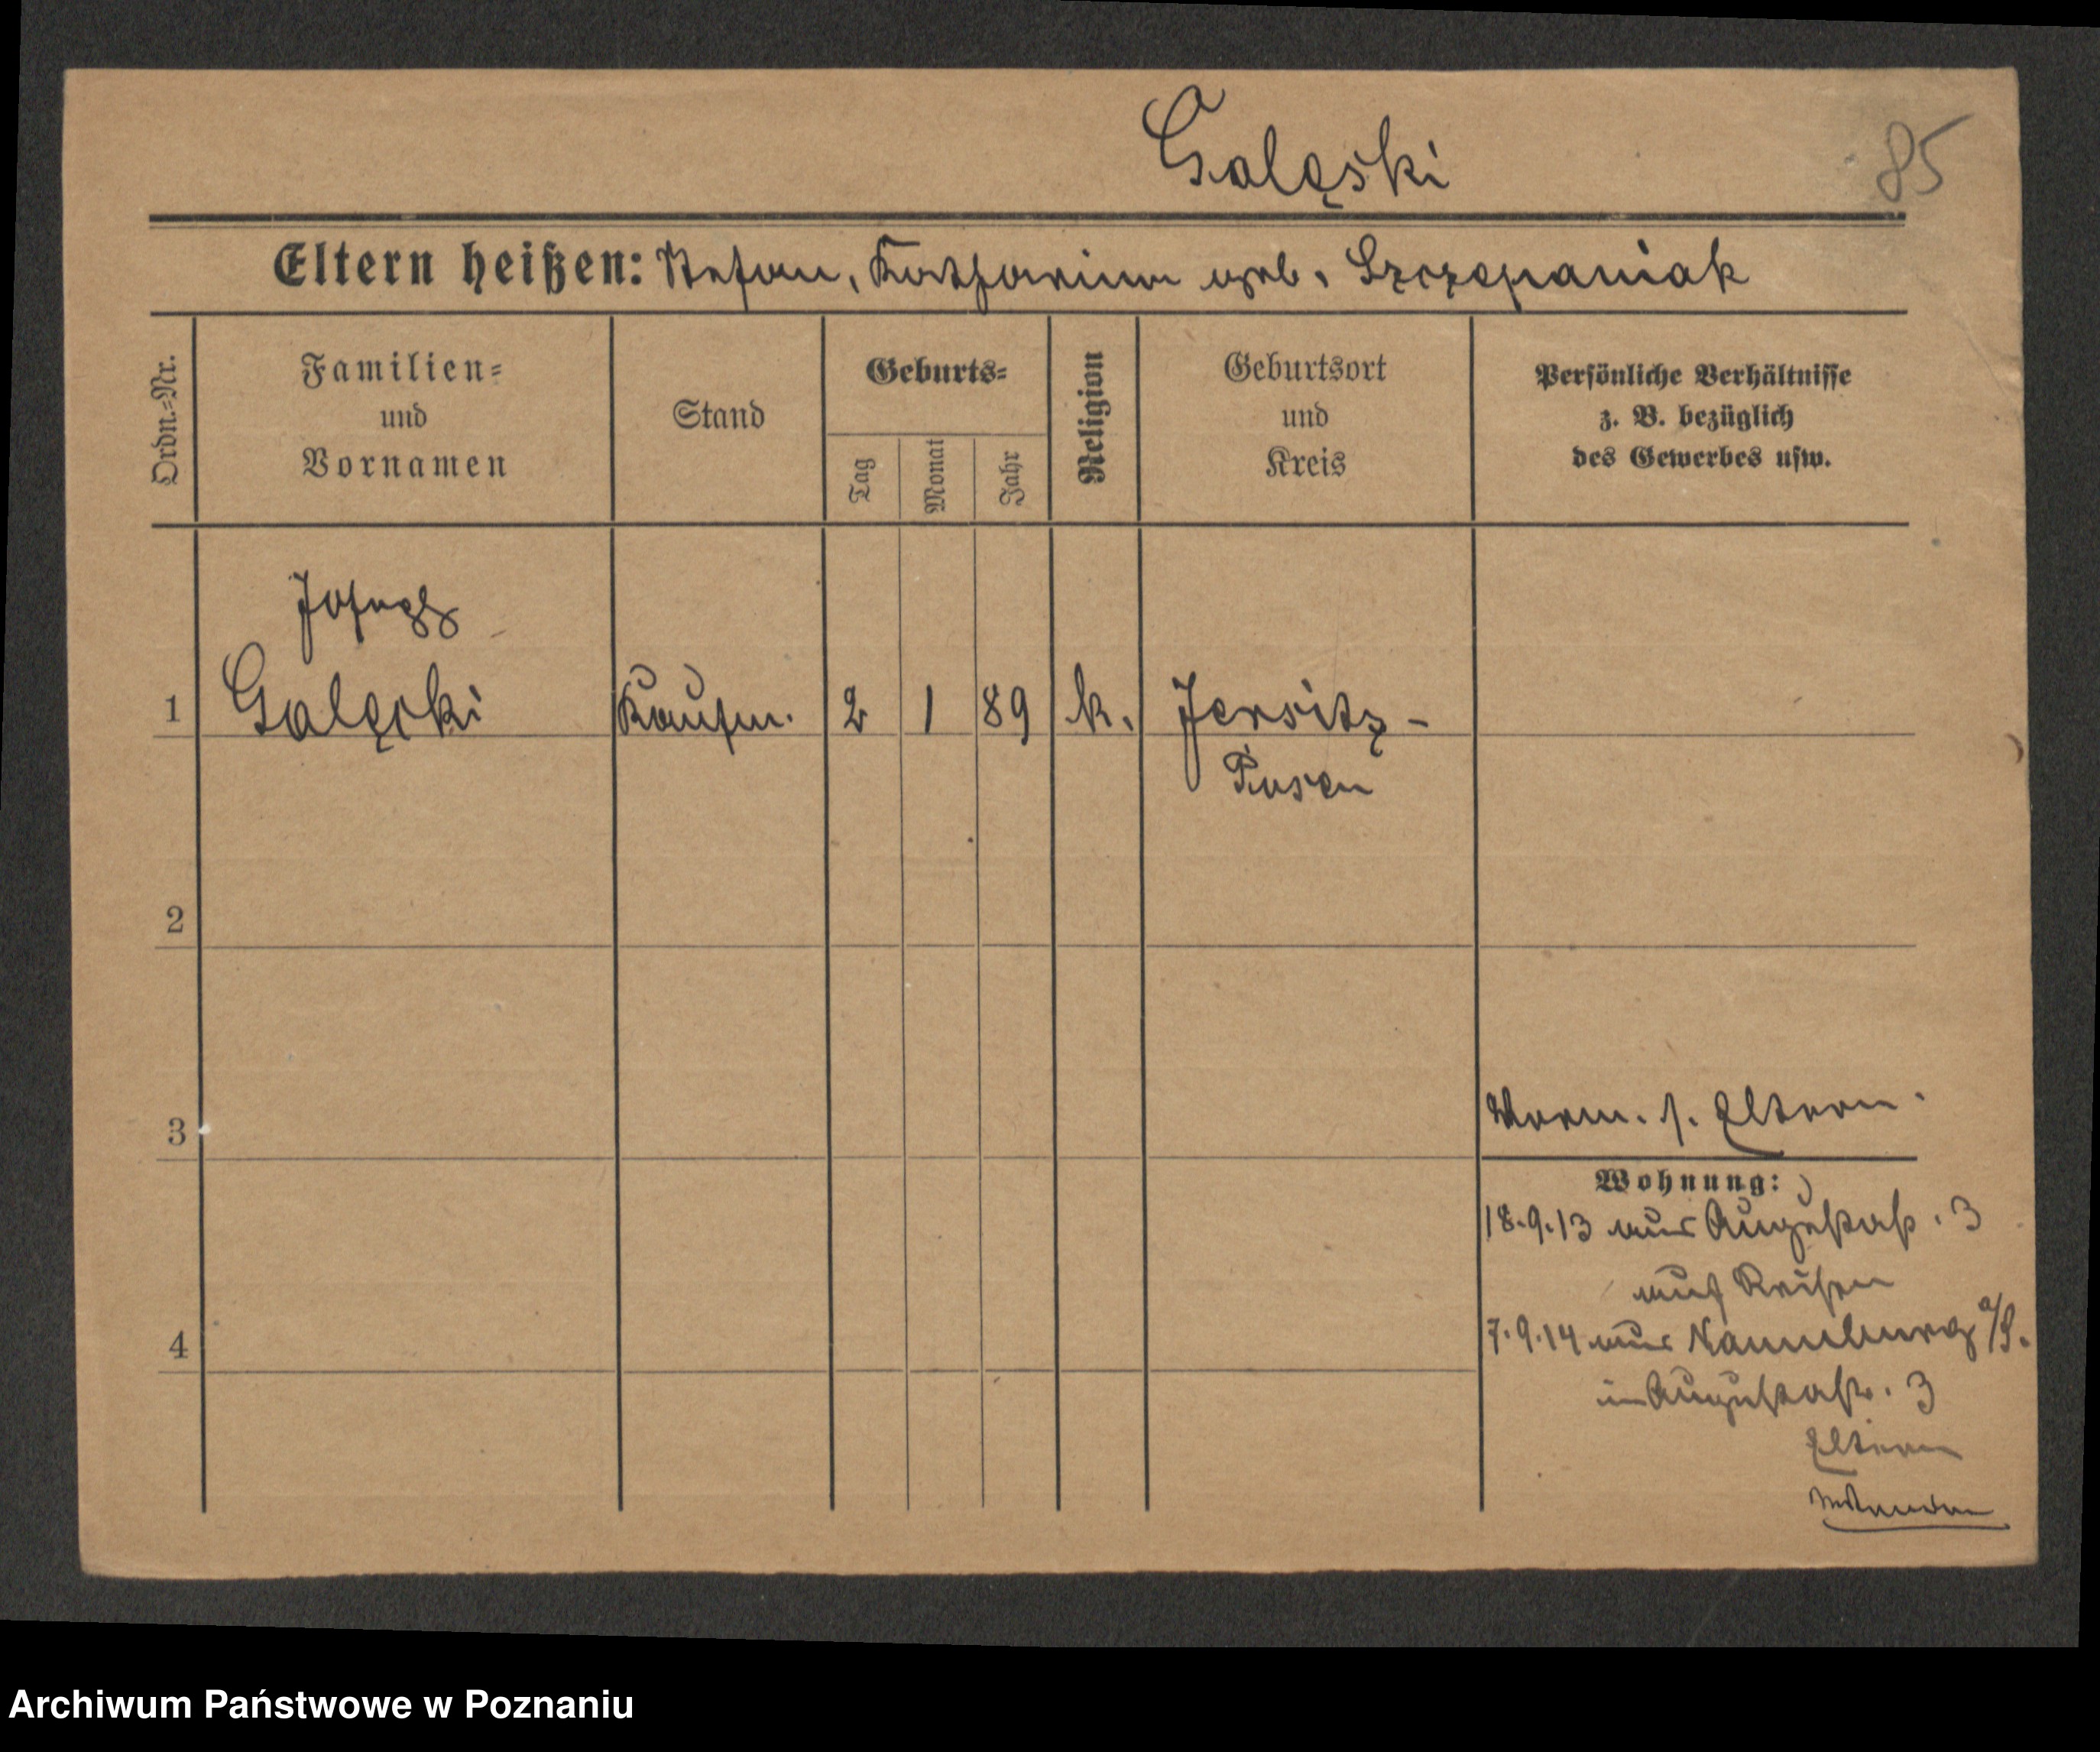 Galęski
85
Eltern heißen: Stefan, Katharina geb. Szczepaniak
Ordn.-Nr.
Familien-
und
Vornamen
Stand
Geburts-
Tag
Monat
Jahr
Religion
Geburtsort
und
Kreis
Persönliche Verhältnisse
z. B. bezüglich
des Gewerbes usw.
Joseph
1 Galęski Kaufm. 2 1 89 k. Jersitz-
Posen
2
3
Vorm. s. Eltern.
Wohnung:
18.9.13 aus Augustastr. 3
auf Reisen
4
7.9.14 aus Naumburg a/S.
in Augustastr. 3
Eltern
Archiwum Państwowe w Poznaniu